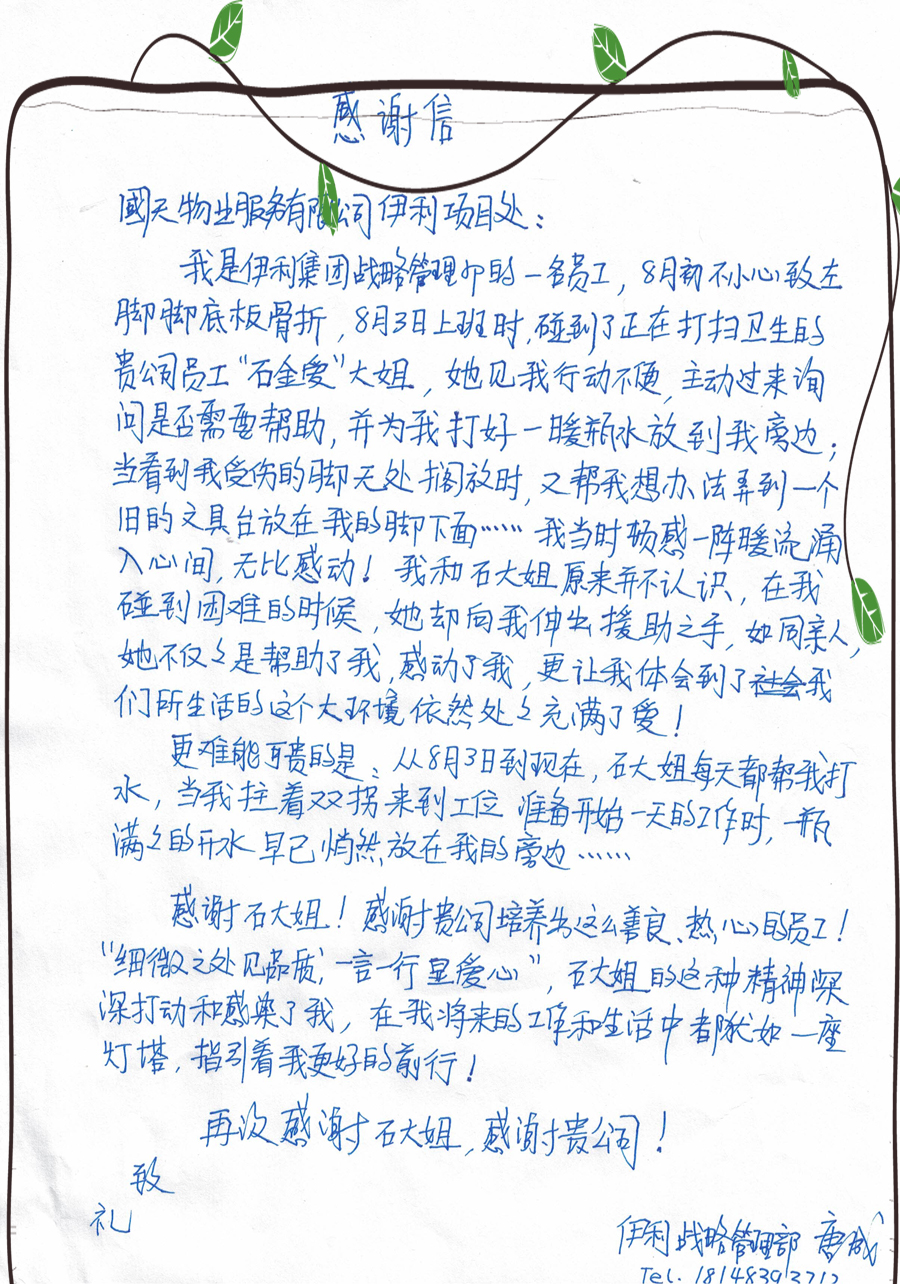 感谢信
國天物业服务有限公司伊利项目处：
我是伊利集团战略管理卩的一名员工，8月初不小心致左
脚脚底板骨折，8月3日上班时，碰到了正在打扫卫生的
贵公司员工“石金爱”大姐，她见我行动不便，主动过来询
问是否需要帮助，并为我打好一暖瓶水放到我旁边；
当看到我受伤的脚无处搁放时，又帮我想办法弄到一个
旧的文具台放在我的脚下面……我当时顿感一阵暖流涌
入心间，无比感动！我和石大姐原来并不认识，在我
碰到困难的时候，她却向我伸出援助之手，如同亲人，
她不仅々是帮助了我，感动了我，更让我体会到了社会我
们所生活的这个大环境依然处々充满了爱！
更难能可贵的是：从8月3日到现在，石大姐每天都帮我打
水，当我拄着双拐来到工位准备开始一天的工作时，一瓶
满々的开水早已悄然放在我的旁边……
感谢石大姐！感谢贵公司培养出这么善良、热心的员工！
“细微之处见品质，一言一行显爱心”，石大姐的这种精神深
深打动和感染了我，在我将来的工作和生活中都犹如一座
灯塔，指引着我更好的前行！
再次感谢石大姐，感谢贵公司！
致
礼
伊利战略管理部 唐成
Tel. 18148393712